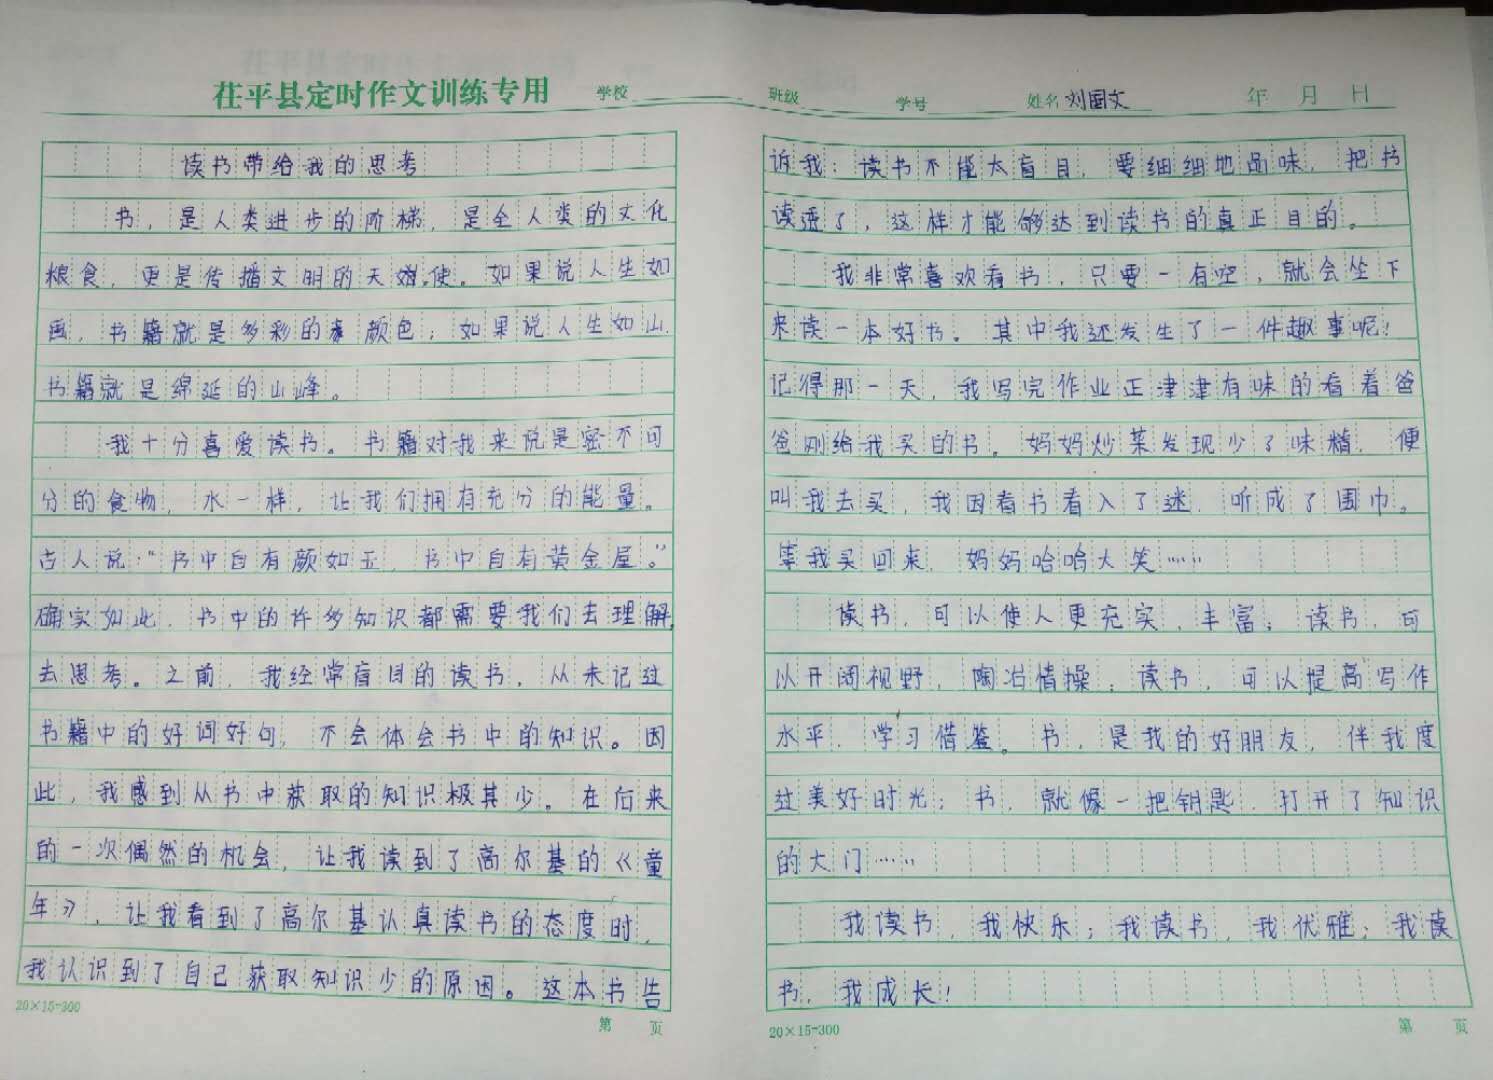 茌平县定时作文训练专用 学校 班级 学号 姓名 刘国文 年 月 日
读书带给我的思考
书，是人类进步的阶梯，是全人类的文化
粮食，更是传播文明的天使。如果说人生如
画，书籍就是多彩的颜色；如果说人生如山，
书籍就是绵延的山峰。
我十分喜爱读书。书籍对我来说是密不可
分的食物，水一样，让我们拥有充分的能量。
古人说：“书中自有颜如玉，书中自有黄金屋。”
确实如此，书中的许多知识都需要我们去理解，
去思考。之前，我经常盲目的读书，从未记过
书籍中的好词好句，不会体会书中的知识。因
此，我感到从书中获取的知识极其少。在后来
的一次偶然的机会，让我读到了高尔基的《童
年》，让我看到了高尔基认真读书的态度时，
我认识到了自己获取知识少的原因。这本书告
20×15=300 第 页
诉我：读书不能太盲目，要细细地品味，把书
读透了，这样才能够达到读书的真正目的。
我非常喜欢看书，只要一有空，就会坐下
来读一本好书。其中我还发生了一件趣事呢！
记得那一天，我写完作业正津津有味的看着爸
爸刚给我买的书。妈妈炒菜发现少了味精，便
叫我去买，我因看书看入了迷，听成了围巾。
等我买回来，妈妈哈哈大笑……
读书，可以使人更充实，丰富；读书，可
以开阔视野，陶冶情操；读书，可以提高写作
水平，学习借鉴。书，是我的好朋友，伴我度
过美好时光；书，就像一把钥匙，打开了知识
的大门……
我读书，我快乐；我读书，我优雅；我读
书，我成长！
20×15=300 第 页